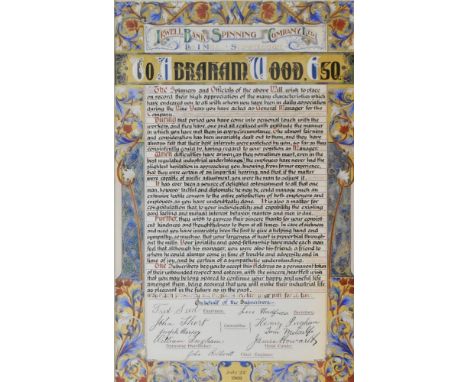 Bank Spinning Company Ltd
To Abraham Wood, Esq.
The Spinners and Officials of the above Mill, wish to place
on record, their high appreciation of the many characteristics which
have endeared you to all with whom you have been in daily association
during the Nine Years you have acted as General Manager for the
Company.
During that period you have come into personal touch with the
workers, and they have one and all realised with gratitude the manner
in which you have met them in every circumstance. The utmost fairness
and consideration has been invariably dealt out to them, and they have
always felt that their best interests were watched by you, so far as they
consistently could be, having regard to your position as Manager.
When difficulties have arisen, as they sometimes must, even in the
best regulated industrial undertakings, the employees have never had the
slightest hesitation in approaching you, knowing from former experience,
that they were certain of an impartial hearing, and that if the matter
were capable of pacific adjustment, you were the man to adjust it.
It has ever been a source of delighted astonishment to all that one
man, however tactful and diplomatic he may be, could manage such an
extensive textile concern to the entire satisfaction of both employers and
employees as you have undoubtedly done. It is also a matter for
congratulation that to your individuality and capability the existing
good feeling and mutual interest between master and men is due.
Further, they wish to express their sincere thanks for your consistent
kindness and thoughtfulness to them at all times. In case of sickness
and need you have invariably been the first to give a helping hand and
sympathy, so much so, that your largeness of heart is proverbial throughout
the mill. Your geniality and good-fellowship have made each man
feel that although his manager, you were also his friend; a friend to
whom he could always come in time of trouble and adversity and in
time of joy, and be certain of a sympathetic understanding.
The Subscribers beg you to accept this Address as a permanent token
of their unbounded respect and esteem, with the sincere, heartfelt wish
that you may be long spared to continue your happy and useful life
amongst them, being assured that you will make their industrial life
as pleasant in the future as in the past.
On behalf of the Subscribers.
Fred Chairman. Secretary.
John Short Henry
Joseph Committee Tom Metcalfe
William James Howarth
John Chief Engineer.
July 22